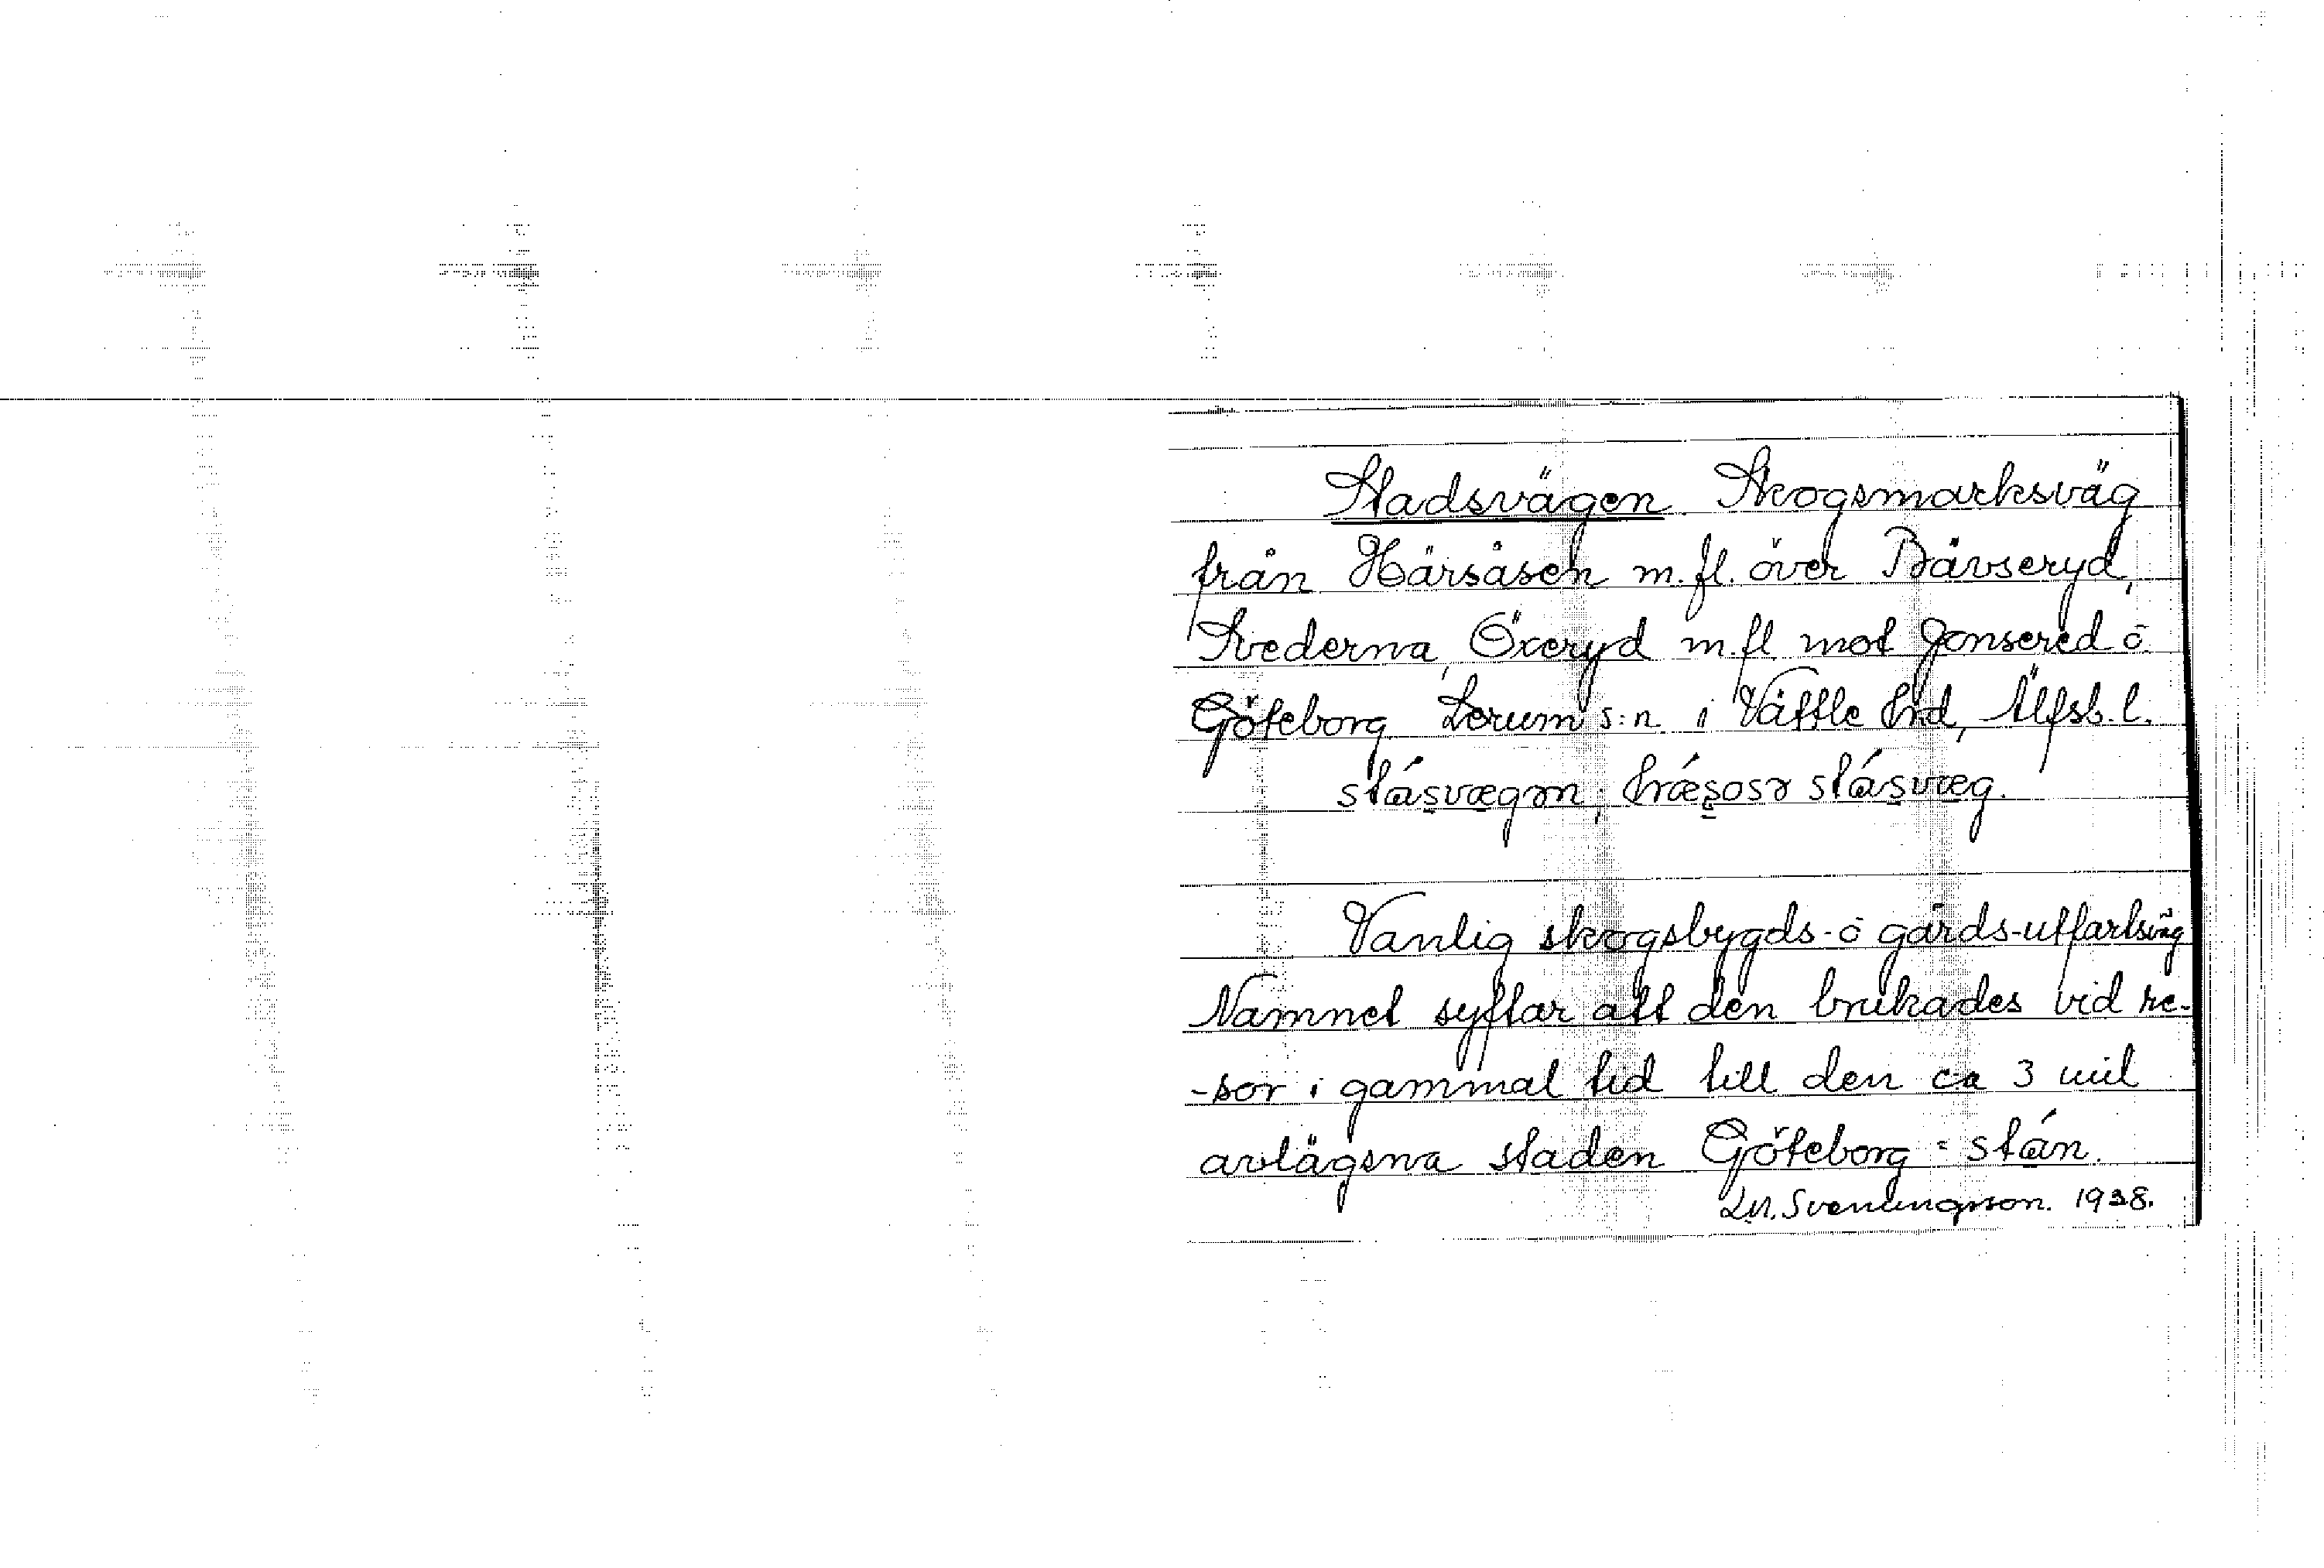 Stadsvägen. Skogsmarksväg
från Härsåsen m.fl. över Bävseryd,
Svederna, Öxeryd m.fl. mot Jonsered o.
Göteborg Lerum s:n i Vättle hrd, Älfsb. l.
stásvægən;  stásvæg.
Vanlig skogsbygds- o gårds-utfartsväg
Namnet syftar att den brukades vid re-
-sor i gammal tid till den ca 3 mil
avlägsna staden Göteborg = stán.
Svenungsson. 1938.